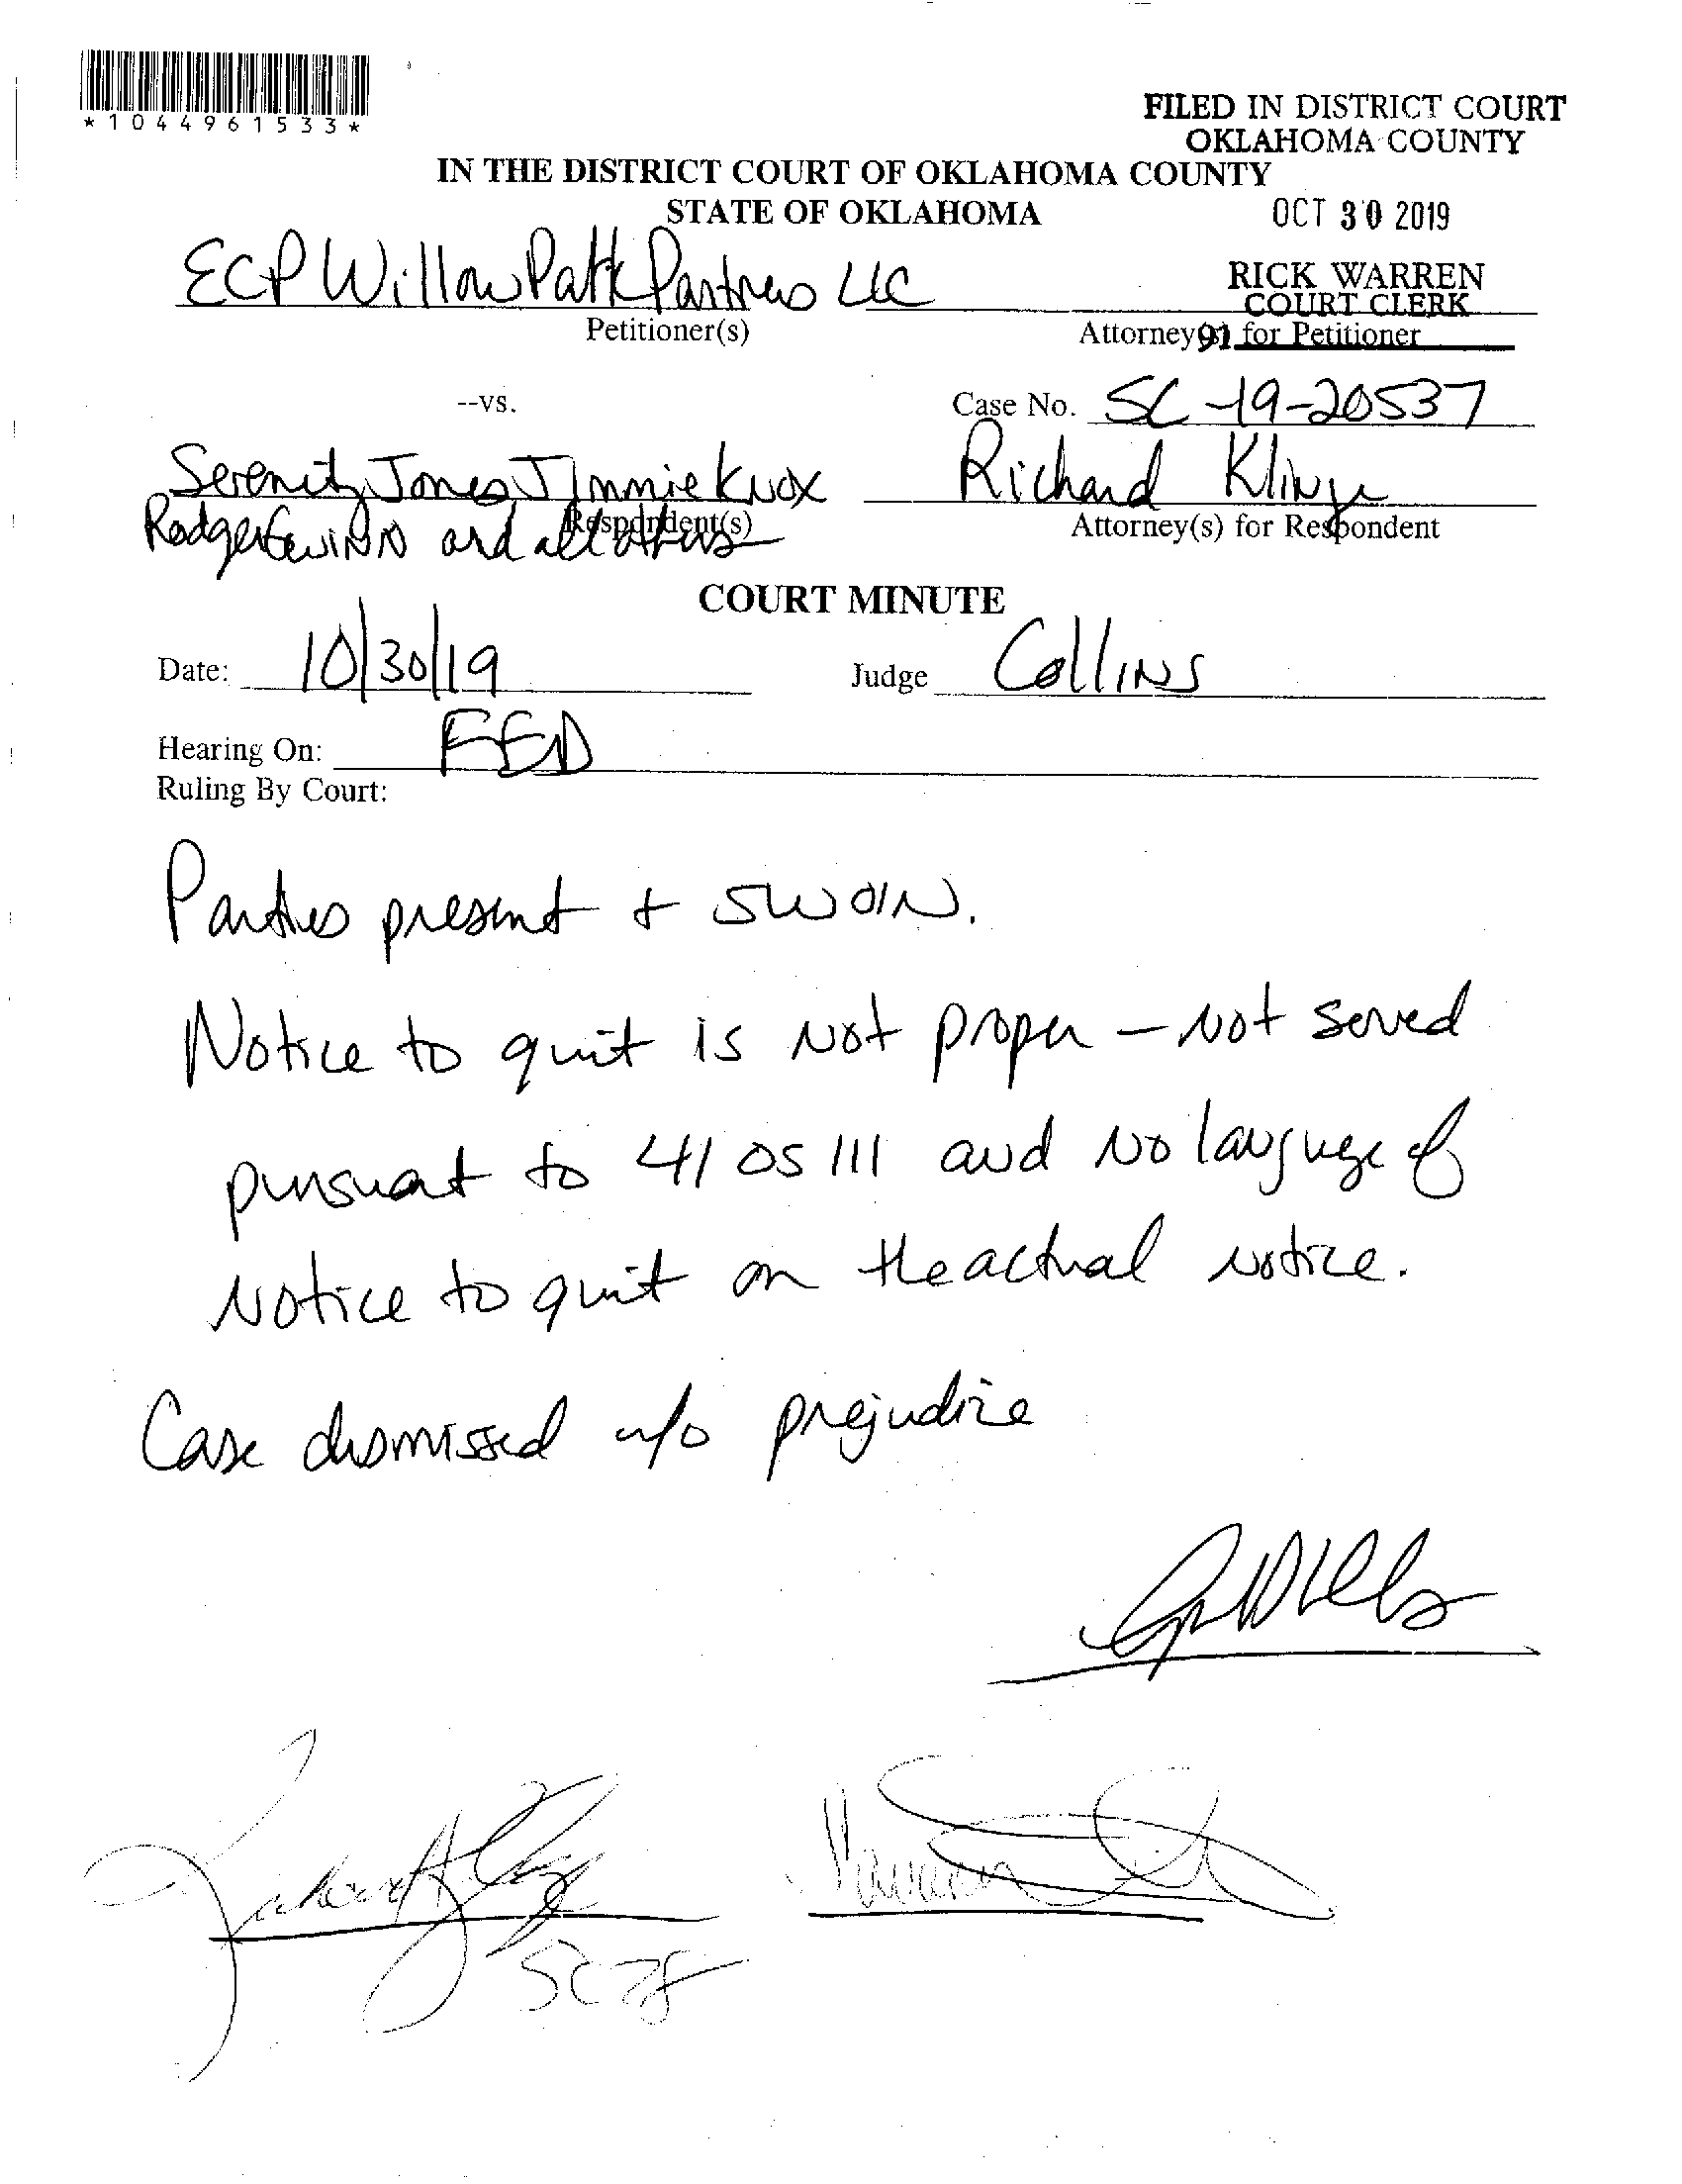 *1044961533*
FILED IN DISTRICT COURT
OKLAHOMA COUNTY
IN THE DISTRICT COURT OF OKLAHOMA COUNTY
STATE OF OKLAHOMA
OCT 30 2019
RICK WARREN
COURT CLERK
ECP Willow Path Partners LLC
Petitioner(s)
91
Attorney(s) for Petitioner
--vs.
Case No. SC-19-20537
Serenity Jones Jimmie Knox
Richard Klinge
Rodger and all others
Respondent(s)
Attorney(s) for Respondent
COURT MINUTE
Date: 10/30/19
Judge Collins
Hearing On: FED
Ruling By Court:
Parties present + sworn.
Notice to quit is not proper – not served
pursuant to 41 OS 111 and no language of
notice to quit on the actual notice.
Case dismissed w/o prejudice